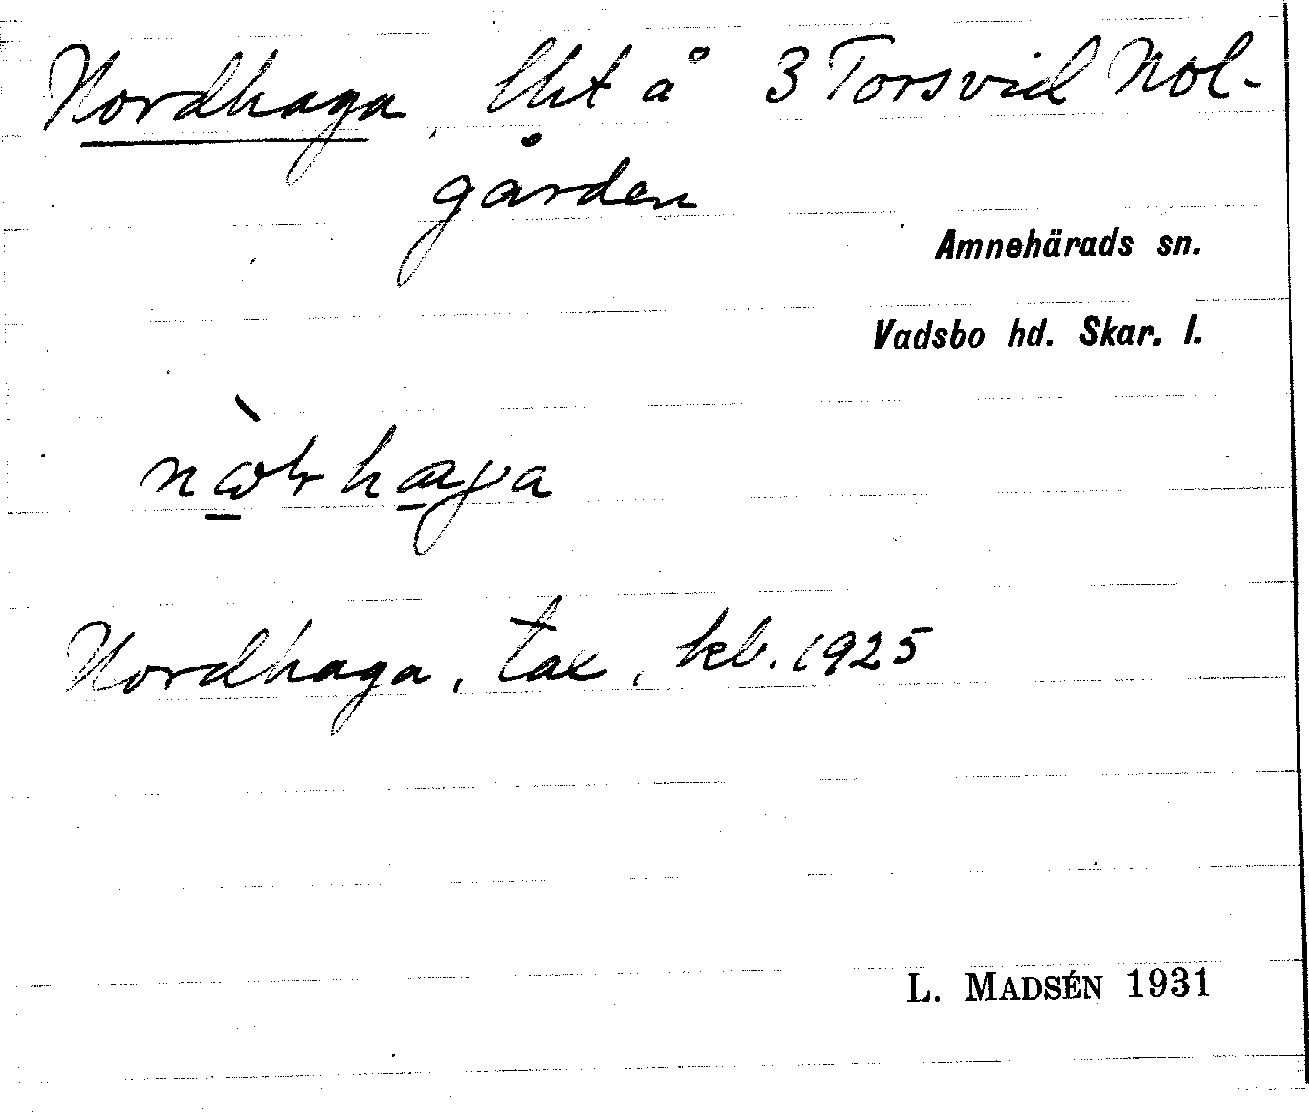 Nordhaga, lht å 3 Torsvid Nol-
gården
Amnehärads sn.
Vadsbo hd. Skar. l.
Nordhaga, tax, kb. 1925
L. MADSÉN 1931